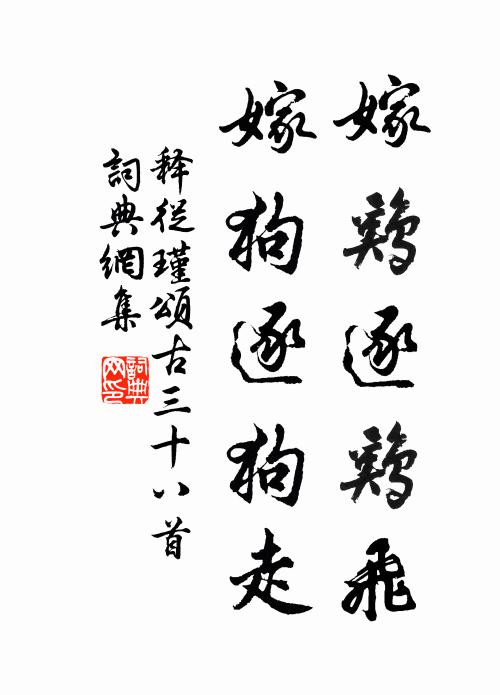 嫁鷄逐鷄飛
嫁狗逐狗走
释從瑾頌古三十八首
詞典網集
詞典
网印